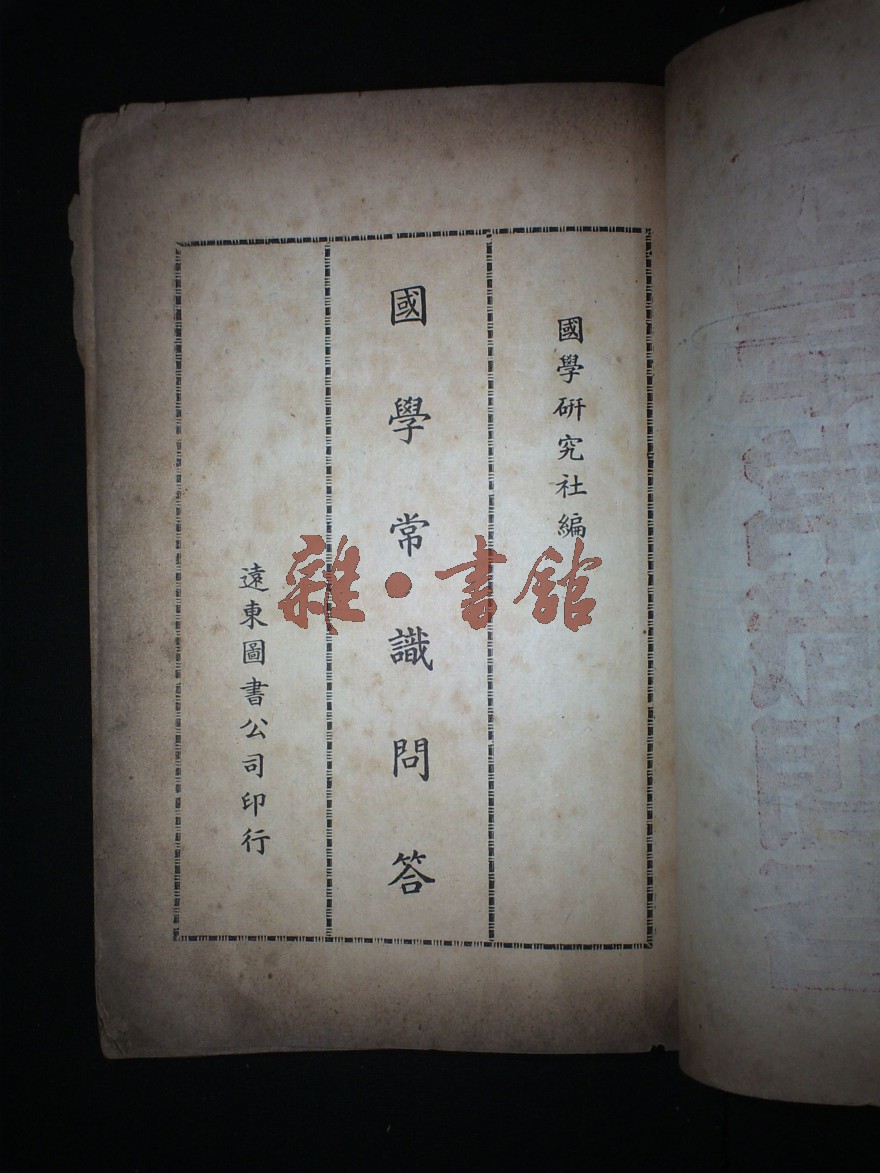 國學研究社編
國學常識問答
遠東圖書公司印行
雜·書館